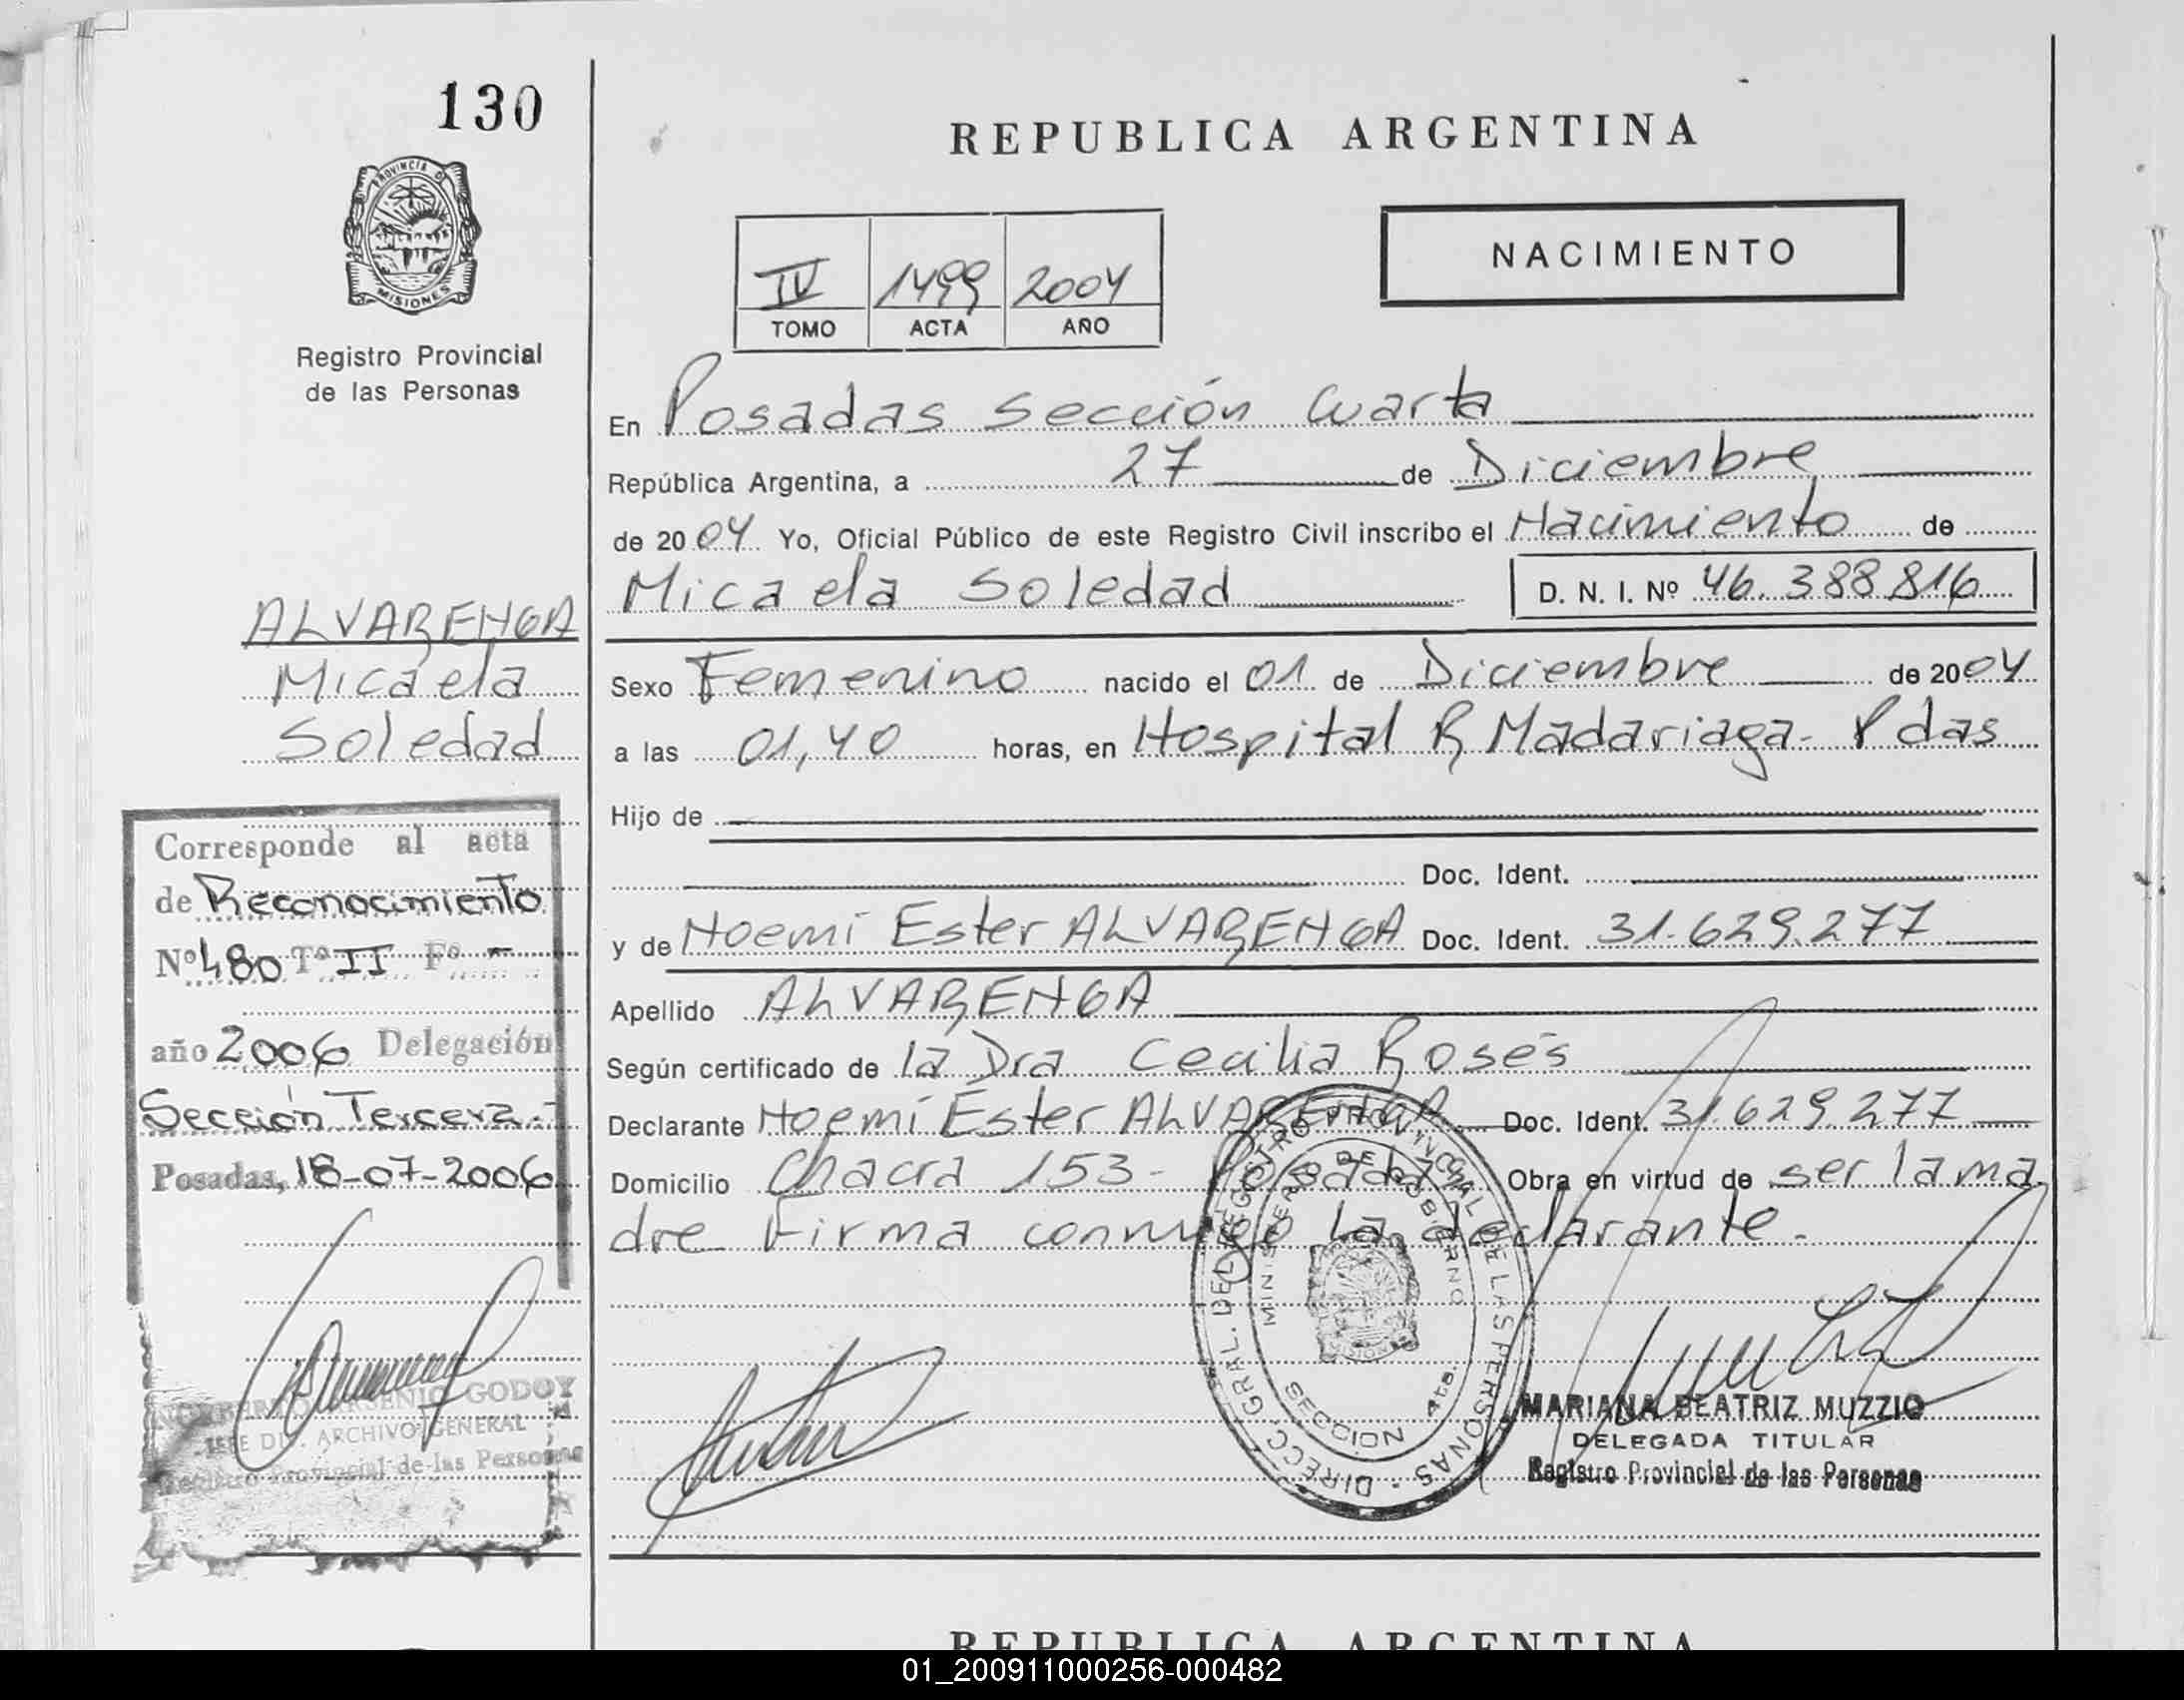 130
PROVINCIA DE
MISIONES
Registro Provincial
de las Personas
ALVARENGA
Micaela
Soledad
Corresponde al acta
de Reconocimiento
Nº 480 Tº II Fº -
año 2006 Delegación
Sección Tercera.-
Posadas, 18-07-2006
NORBERTO ARSENIO GODOY
JEFE DIV. ARCHIVO GENERAL
Registro Provincial de las Personas
REPUBLICA ARGENTINA
NACIMIENTO
IV 1499 2004
TOMO ACTA AÑO
En Posadas Sección Cuarta
República Argentina, a 27 de Diciembre
de 2004 Yo, Oficial Público de este Registro Civil inscribo el Nacimiento de
Micaela Soledad D. N. I. Nº 46.388.816
Sexo Femenino nacido el 01 de Diciembre de 2004
a las 01,40 horas, en Hospital R Madariaga - Pdas
Hijo de
Doc. Ident.
y de Noemí Ester ALVARENGA Doc. Ident. 31.629.277
Apellido ALVARENGA
Según certificado de la Dra Cecilia Rosés
Declarante Noemí Ester ALVARENGA Doc. Ident. 31.629.277
Domicilio Chacra 153- Posadas Obra en virtud de ser la ma
dre Firma conmigo la declarante.-
DIRECC. GRAL. DEL REGISTRO PROVINCIAL DE LAS PERSONAS
MINISTERIO DE GOBIERNO
SECCION 4ta.
MARIANA BEATRIZ MUZZIO
DELEGADA TITULAR
Registro Provincial de las Personas
REPUBLICA ARGENTINA
01_200911000256-000482